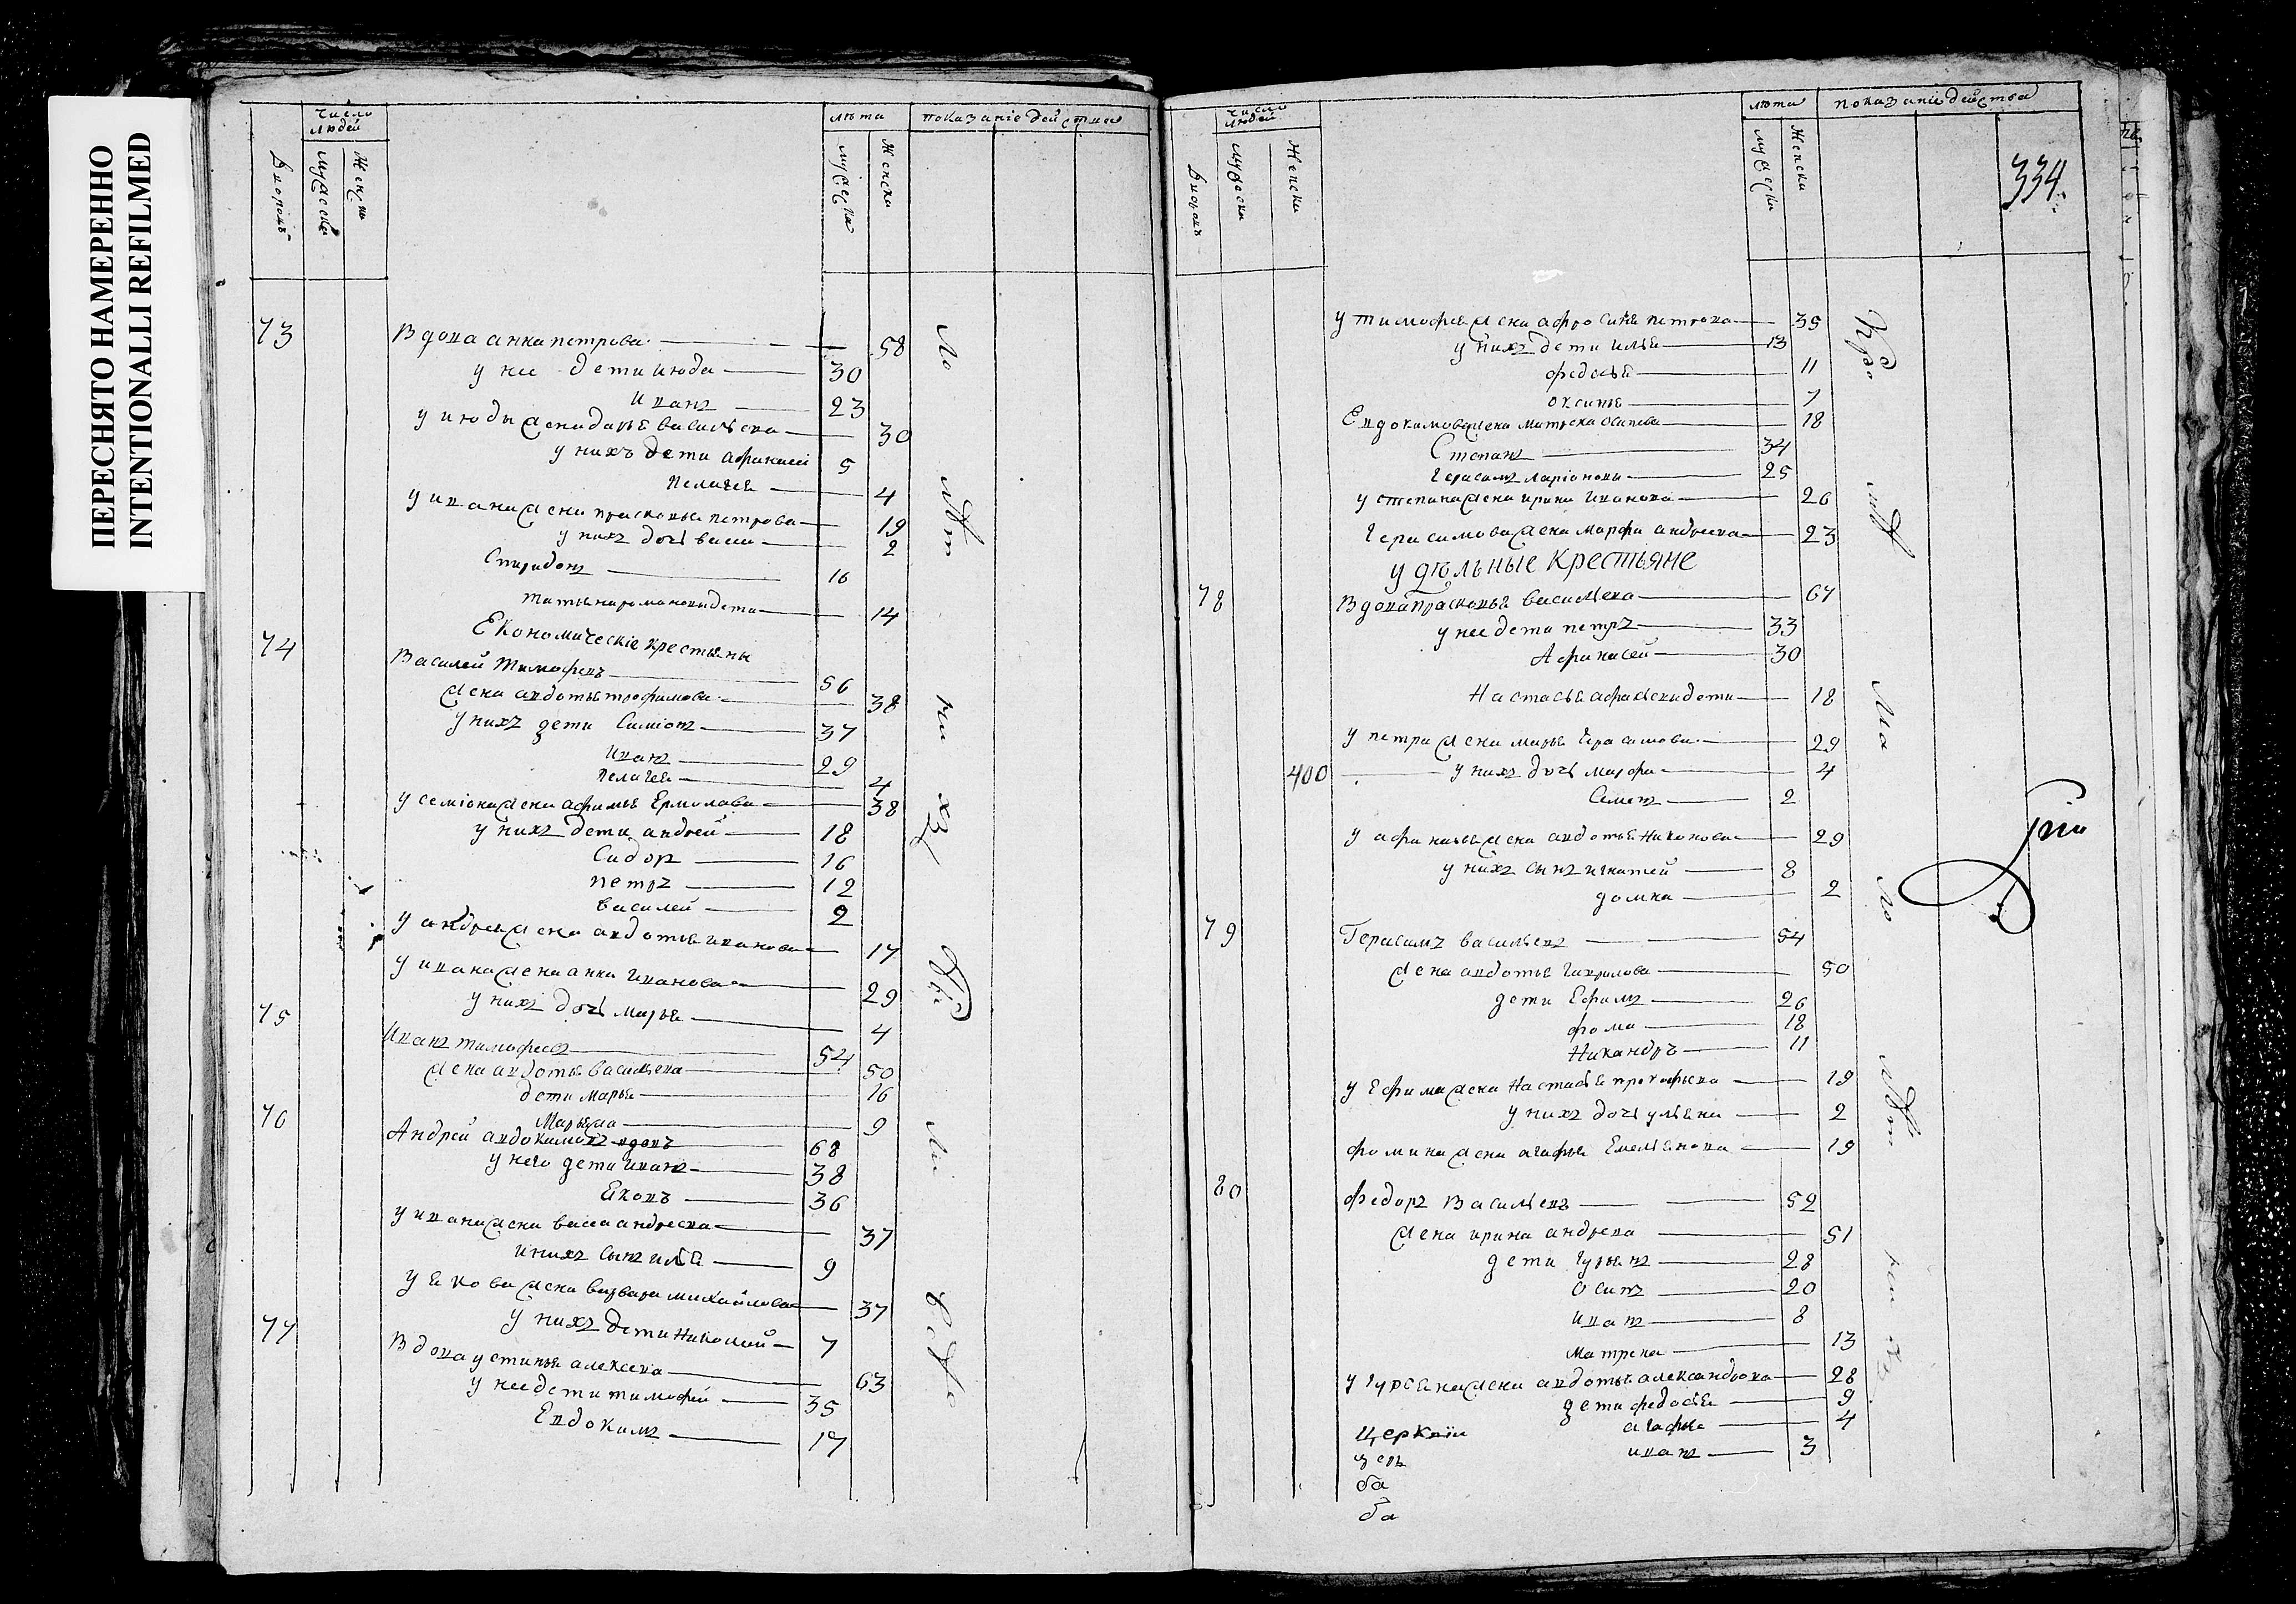 ПЕРЕСНЯТО НАМЕРЕННО
INTENTIONALLI REFILMED
число людей
лѣта
показаніе действа
дворовъ
мужеска
женска
мужеска
женска
73 Вдова анна петрова 58
у нее дети июда 30
иванъ 23
у июды жена дарья васильева 30
у нихъ дети афанасеі 5
пелагея 4
у ивана жена прасковья петрова 19
у нихъ дочь васса 2
Спиридонъ 16
татьяна романови дети 14
Економическіе крестьяны
74 Василей тимофевъ 56
жена авдотья трофимова 38
у нихъ дети Симіонъ 37
иванъ 29
пелагея 4
у семіона жена афимья Ермолава 38
у нихъ дети андрей 18
Сидоръ 16
петръ 12
василей 2
у андрея жена авдотья иванова 17
у ивана жена анна иванова 29
у нихъ дочь марья 4
75 Иванъ тимофеевъ 54
жена авдотья васильева 50
дети марья 16
Марьяна 9
76 Андрей авдокимовъ вдовъ 68
у него дети иванъ 38
Яковъ 36
у ивана жена васса андреева 37
у нихъ сынъ илья 9
у якова жена варвара михайлова 37
у нихъ дети николай 7
77 Вдова устинья алексева 63
у нее дети тимофей 35
Евдокимъ 17
число людей
лѣта
показаніе действа
дворовъ
мужеска
женска
мужеска
женска
334
у тимофея жена афросинья петрова 35
у нихъ дети илья 13
федосья 11
оксинья 7
Евдокимова жена матрена осипова 18
Степанъ 34
герасимъ ларіоновы 25
у степана жена ирина иванова 26
герасимова жена марфа андреева 23
удѣльные крестьяне
78 Вдова прасковья васильева 67
у нее дети петръ 33
Афанасей 30
Настасья дети 18
у петра жена марья герасимова 29
400 у нихъ дочь марфа 4
Семенъ 2
у афанасья жена авдотья никонова 29
у нихъ сынъ игнатей 8
домна 2
79 Герасимъ васильевъ 54
жена авдотья гаврилова 50
дети Ефимъ 26
фома 18
Никандръ 11
у Ефима жена настасья прокофьева 19
у нихъ дочь ульяна 2
фомина жена агафья Емельянова 19
80 Федоръ Васильевъ 52
жена ирина андрева 51
дети гурьянъ 28
Осипъ 20
иванъ 8
матрена 13
у гурьяна жена авдотья александрова 28
дети федосья 9
агафья 4
иванъ 3
церквіи
церъ
ба
ба